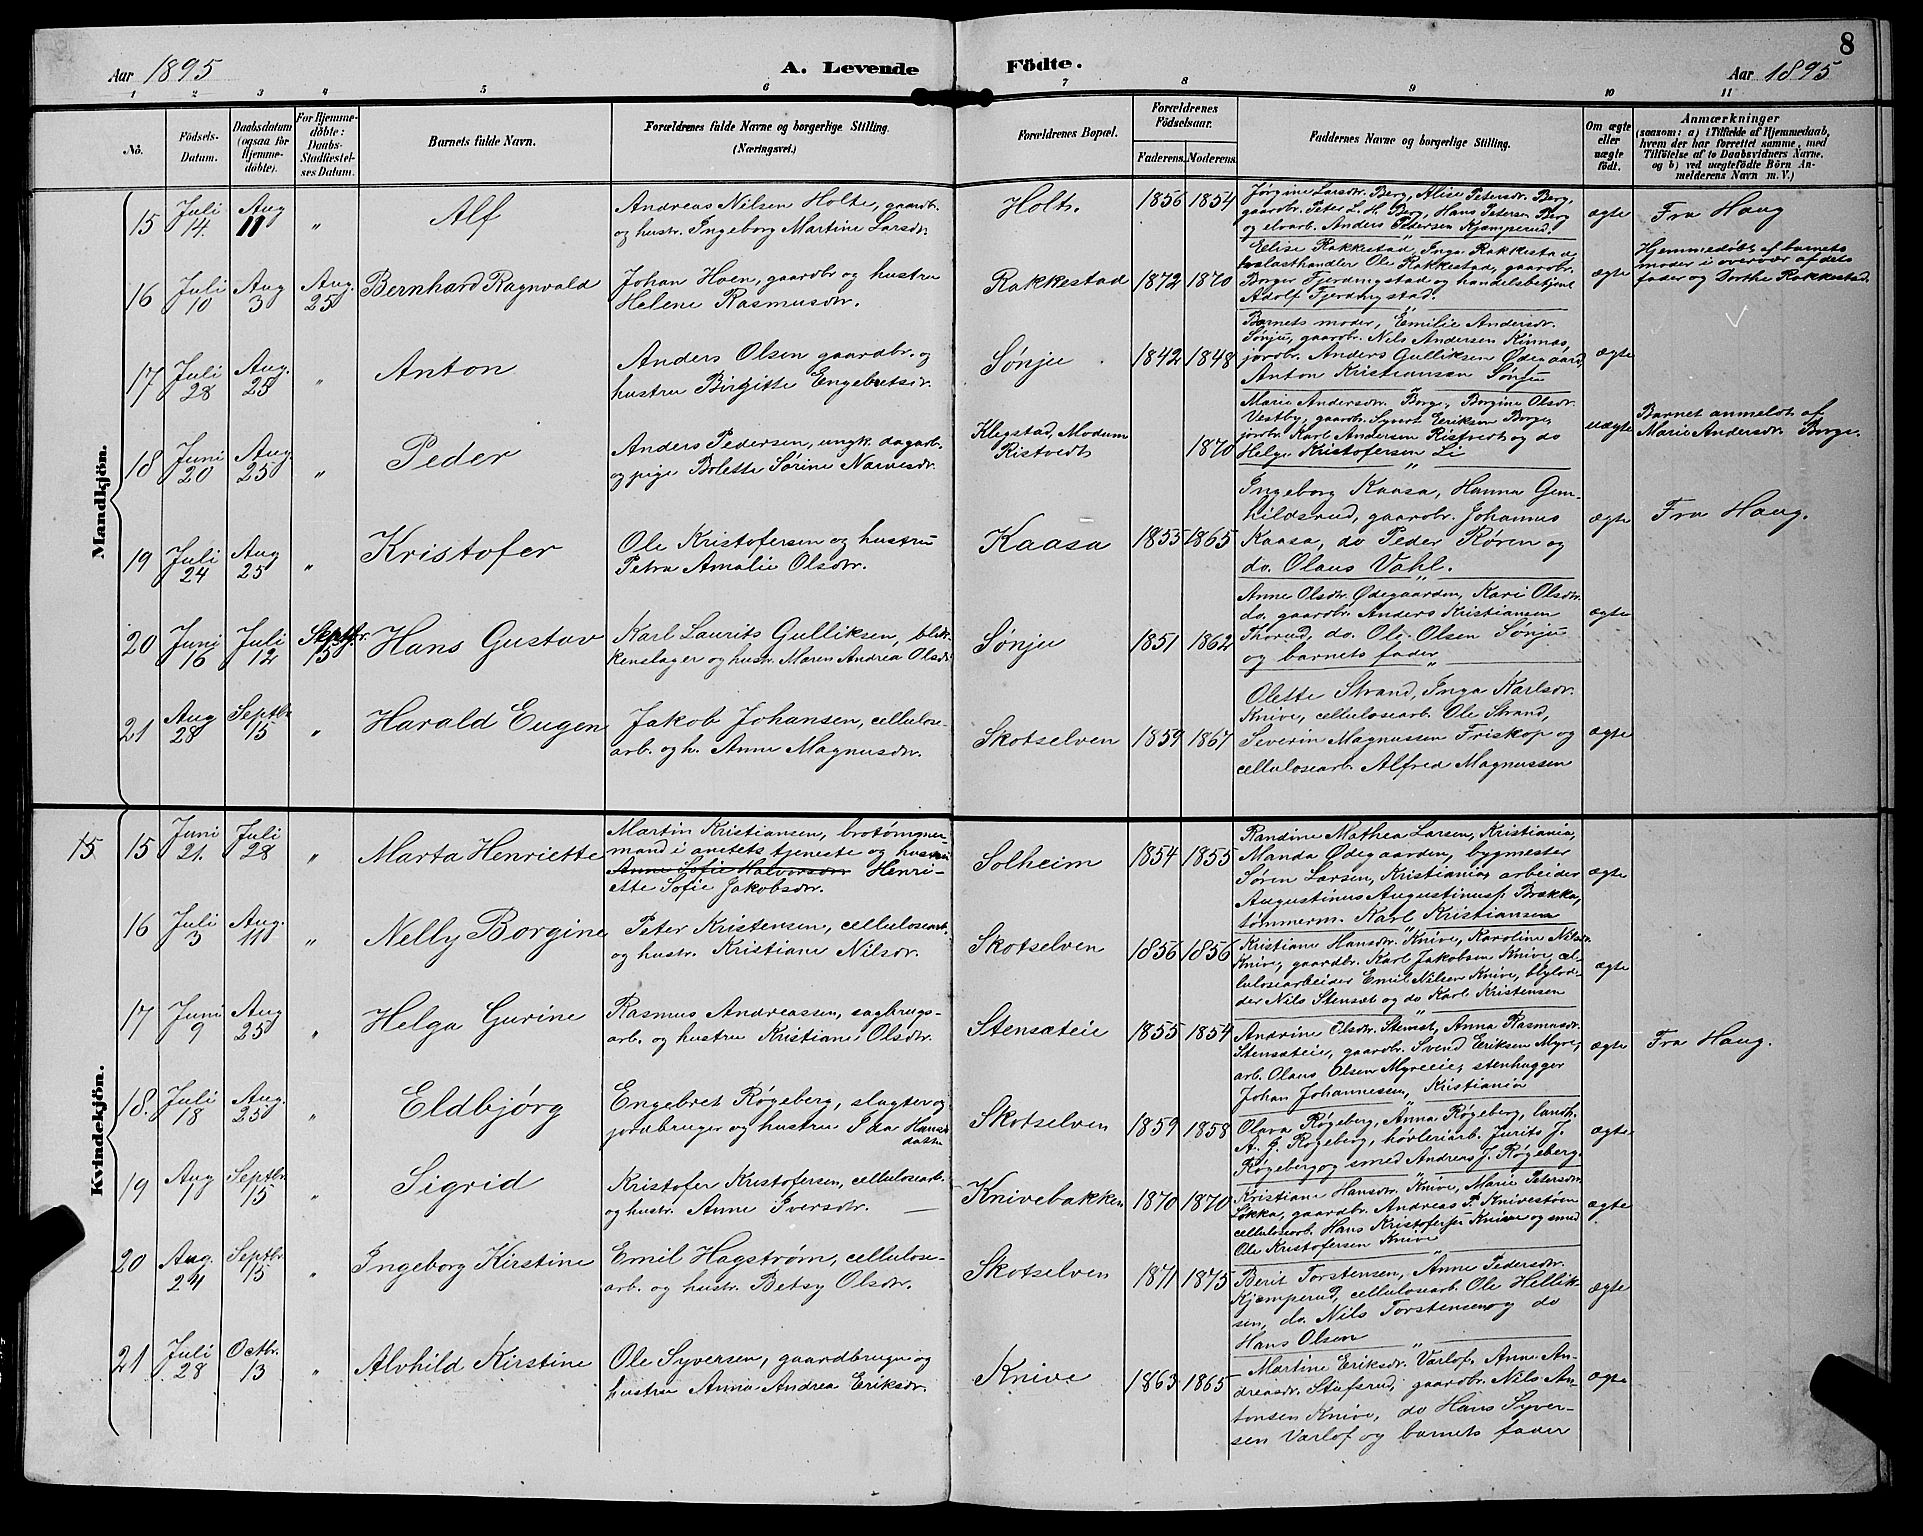 8
Aar 1895
A. Levende
Födte.
Aar 1895
1 2 3 4 5 6 7 8 9 10 11
No.
Födsels-
Datum.
Daabsdatum
(ogsaa for
Hjemme-
döbte).
For Hjemme-
döbte:
Daabs-
Stadfæstel-
ses Datum.
Barnets fulde Navn.
Forældrenes fulde Navne og borgerlige Stilling.
(Næringsvei.)
Forældrenes Bopæl.
Forældrenes
Födselsaar.
Faderens. Moderens.
Faddernes Navne og borgerlige Stilling.
Om ægte
eller
uægte
født.
Anmærkninger
(saasom: a) i Tilfælde af Hjemmedaab,
hvem der har forrettet samme, med
Tilföielse af to Daabsvidners Navne,
og b) ved uegtefödte Börn An-
melderens Navn m. V.)
Mandkjön.
15
Juli
14.
Aug
11
"
Alf
Andreas Nilsen Holte, gaardbr.
og hustr. Ingeborg Martine Larsdr.
Holt.
1856 1854
Jørgine Larsdr. Berg, Alise Petersdr. Berg,
gaardbr. Peter L. H. Berg, Hans Petersen Berg
og elvarb. Anders Pedersen Kjemperud.
ægte
Fra Haug
16
Juli
10
Aug
3
Aug.
25
Bernhard Ragnvald
Johan Hoen, gaardbr og hustru
Helene Rasmusdr.
Rakkestad
1872 1870
Elise Rakkestad, Inga Rakkestad,
trælasthandler Ole Rakkestad, gaardbr.
Borger Fjerdingstad og handelsbetjent
Adolf Fjerdingstad.
ægte
Hjemmedøbt af barnets
moder i overvær af dets
fader og Dorthe Rakkestad.
17
Juli
28
Aug.
25
"
Anton
Anders Olsen gaardbr. og
hustru Birgitte Engebretsdr.
Sønju
1842 1848
Barnets moder, Emilie Andersdr.
Sønju, gaardbr. Nils Andersen Kinnas,
jordbr. Anders Gulliksen Ødegaard,
Anton Kristiansen Sønju
ægte
18
Juni
20
Aug.
25
"
Peder
Anders Pedersen, ungk. dagarb.
og pige Bolette Sørine Narvesdr.
Klegstad, Modum
Ristvedt
1870
Marie Andersdr. Borge, Borgine Olsdr.
Vestby, gaardbr. Synert Eriksen Borge,
jordbr. Karl Andersen Ristvedt og do
Helge Kristofersen Li
uægte
Barnet anmeldt af
Marie Andersdr. Borge.
19
Juli
24
Aug
25
"
Kristofer
Ole Kristofersen og hustru
Petra Amalie Olsdtr.
Kaasa
1855 1865
Ingeborg Kaasa, Hanna Gun-
hildsrud, gaardbr. Johannes
Kaasa, do Peder Røren og
do. Olaus Vahl.
ægte
Fra Haug.
20
Juni
16
Juli
12
Septbr.
15
Hans Gustav
Karl Laurits Gulliksen, blik-
kenslager og hustr. Maren Andrea Olsdr
Sønju
1851 1862
Anne Olsdtr. Ødegaarden, Kari Olsdtr.
do, gaardbr. Anders Kristiansen
Thorud, do. Ole Olsen Sønju
og barnets fader
ægte
21
Aug
28
Septbr
15
"
Harald Eugen
Jakob Johansen, cellulose-
arb. og h. Anne Magnusdr.
Skotselven
1859 1867
Olette Strand, Inga Karlsdr.
Knive, cellulosearb. Ole Strand,
Severin Magnussen Friskop og
cellulosearb. Alfred Magnussen
ægte
Kvindekjön.
15
15
Juni
21.
Juli
28
"
Marta Henriette
Martin Kristiansen, brotömmer-
mand i anetets tjeneste og hustru
Anne Sofie Halvorsdr Henri-
ette Sofie Jakobsdr.
Solheim
1854 1855
Randine Mathea Larsen, Kristiania,
Manda Ødegaarden, bygmester
Søren Larsen, Kristiania, arbeider
Augustinus Augustinusf. Brækka,
tømmerm. Karl Kristiansen
ægte
16
Juli
3
Aug.
11
"
Nelly Borgine
Peter Kristensen, cellulosearb.
og hustr. Kristiane Nilsdr.
Skotselven
1856 1856
Kristiane Hansdr. Knive, Karoline Nilsdr.
Knive, gaardbr. Karl Jakobsen Knive, cel-
lulosearbeider Emil Nilsen Knive,
der Nils Stensæt og do Karl Kristensen
ægte
17
Juni
9
Aug
25
"
Helga Gurine
Rasmus Andreassen, sagbrugs-
arb. og hustru Kristiane Olsdtr.
Stensæteie
1855 1854
Andrine Olsdr. Stenset, Anna Rasmusdr.
Stensæteie, gaardbr. Svend Eriksen Myre,
arb. Olaus Olsen Myreeie, stenhugger
Johan Johannessen, Kristiania
ægte
Fra Haug.
18.
Juli
18
Aug.
25
"
Eldbjørg
Engebret Røgeberg, slagter og
jordbruger og hustru Ida Hans-
datter
Skotselven
1859 1858
Olava Røgeberg, Anna Røgeberg, landh.
A. J. Røgeberg, høvleriarb. Jurits J.
Røgeberg og smed Andreas J. Røgeberg.
ægte
19
Aug
1
Septbr.
15
"
Sigrid
Kristofer Kristofersen, cellulosearb.
og hustr. Anne Iversdtr.
Knivebakken
1870 1870
Kristiane Hansdtr. Knive, Marie Petersdr.
Løkka, gaardbr. Andreas P. Knivestøen
cellulosearb. Hans Kristofersen Knive og smed
Ole Kristofersen Knive
ægte
20
Aug.
24
Septbr
15
"
Ingeborg Kirstine
Emil Hagstrøm, cellulose-
arb. og hustr. Betsy Olsdr.
Skotselven
1871 1875
Berit Torstensen, Anne Pedersdr.
Kjemperud, cellulosearb. Ole Hellik-
sen, do. Nils Torstensen og do
Hans Olsen
ægte
21
Juli
28
Octbr.
13
"
Alvhild Kirstine
Ole Syversen, gaardbruger og
hustru Anna Andrea Eriksdr.
Knive
1863 1865
Martine Eriksdr. Varlof, Anne An-
dreasdr. Stufsrud, gaardbr. Nils An-
tonsen Knive, do Hans Syver-
sen Varlof og barnets fader
ægte